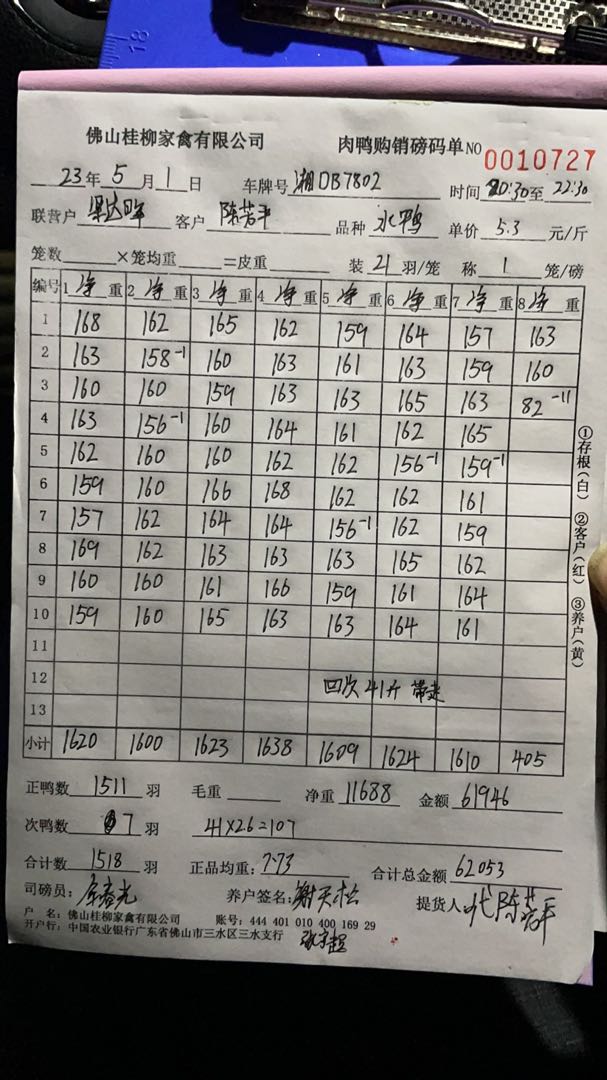 佛山桂柳家禽有限公司 肉鸭购销磅码单 NO 0010727
23年 5 月 1 日 车牌号 湘DB7802 时间 20:30至 22:30
联营户 客户 陈芳平 品种 水鸭 单价 5.3 元/斤
笼数 ×笼均重 =皮重 装 21 羽/笼 称 1 笼/磅
编号 1 净 重 2 净 重 3 净 重 4 净 重 5 净 重 6 净 重 7 净 重 8 净 重
1 168 162 165 162 159 164 157 163
2 163 158-1 160 163 161 163 159 160
3 160 160 159 163 163 165 163 82-11
4 163 156-1 160 164 161 162 165
5 162 160 160 162 162 156-1 159-1
6 159 160 166 168 162 162 161
7 157 162 164 164 156-1 162 159
8 169 162 163 163 163 165 162
9 160 160 161 166 159 161 164
10 159 160 165 163 163 164 161
11
12 回次41斤 带走
13
小计 1620 1600 1623 1638 1609 1624 1610 405
①存根(白) ②客户(红) ③养户(黄)
正鸭数 1511 羽 毛重 净重 11688 金额 61946
次鸭数 7 羽 41×26=107
合计数 1518 羽 正品均重: 7.73 合计总金额 62053
司磅员: 养户签名: 谢天松 提货人: 代陈芳平
户 名: 佛山桂柳家禽有限公司 账号: 444 401 010 400 169 29
开户行: 中国农业银行广东省佛山市三水区三水支行
18